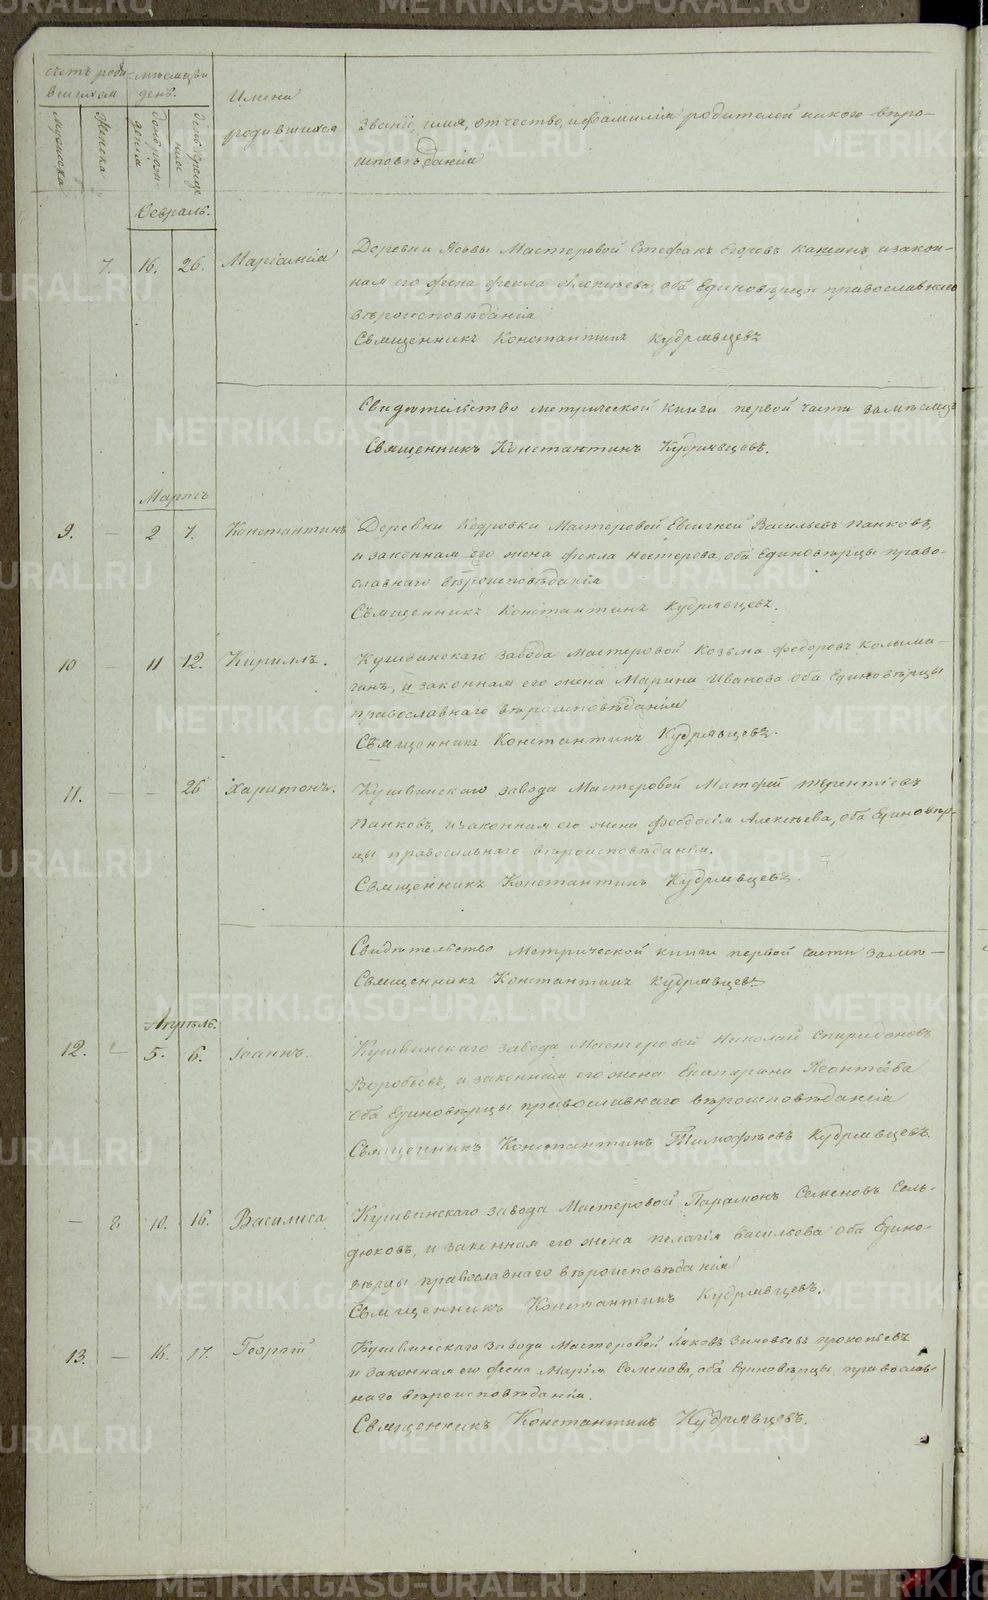 Счетъ роди- мѣсяцъ и
вшихся день.
Имена
родившихся
мужеска
женска
день рож-
денія
день креще
нія
званіе, имя, отчество, и фамилія родителей и какого вѣро-
исповѣданія
Февраль.
7. 16. 26. Маріанія Деревни Ясьвы Мастеровой Стефанъ Егоровъ Кашинъ и закон-
ная его жена Фекла Алексѣева, оба Единовѣрцы православнаго
вѣроисповѣданія
Священникъ Константинъ Кудрявцевъ
Свидѣтельство метрической книги первой части за мѣсяцъ
Священникъ Константинъ Кудрявцевъ.
Мартъ
9. — 2 7. Константинъ Деревни Кедровки Мастеровой Евсигней Васильевъ Панковъ,
и законная его жена Фекла Нестерова, оба Единовѣрцы право-
славнаго вѣроисповѣданія
Священникъ Константинъ Кудрявцевъ.
10 — 11 12. Кириллъ. Кушвинскаго завода мастеровой Козьма Федоровъ Колыма-
ганъ, и законная его жена Марина Иванова оба Единовѣрцы
православнаго вѣроисповѣданія
Священникъ Константинъ Кудрявцевъ.
11. — — 26 Харитонъ. Кушвинскаго завода Мастеровой Матфий Терентіевъ
Панковъ, и законная его жена Феодосія Алексѣева, оба Единовѣр-
цы православнаго вѣроисповѣданія.
Священникъ Константинъ Кудрявцевъ.
Свидѣтельство метрической книги первой части за мѣ—
Священникъ Константинъ Кудрявцевъ
Апрѣль.
12. — 5. 6. Іоаннъ. Кушвинскаго завода Мастеровой Николай Спиридоновъ
Воробьевъ, и законная его жена Екатерина Леонтіева
оба Единовѣрцы православнаго вѣроисповѣданія
Священникъ Константинъ Тимофѣевъ Кудрявцевъ.
— 8 10. 16. Василиса Кушвинскаго завода Мастеровой Парамонъ Семеновъ Сель-
дюковъ, и законная его жена Пелагія Васильева оба Едино-
вѣрцы православнаго вѣроисповѣданія
Священникъ Константинъ Кудрявцевъ.
13. — 16. 17. Георгій Кушвинскаго завода Мастеровой Яковъ Зиновьевъ Прокопьевъ
и законная его жена Марія Семенова, оба Единовѣрцы православ-
наго вѣроисповѣданія.
Священникъ Константинъ Кудрявцевъ.
METRIKI.GASO-URAL.RU